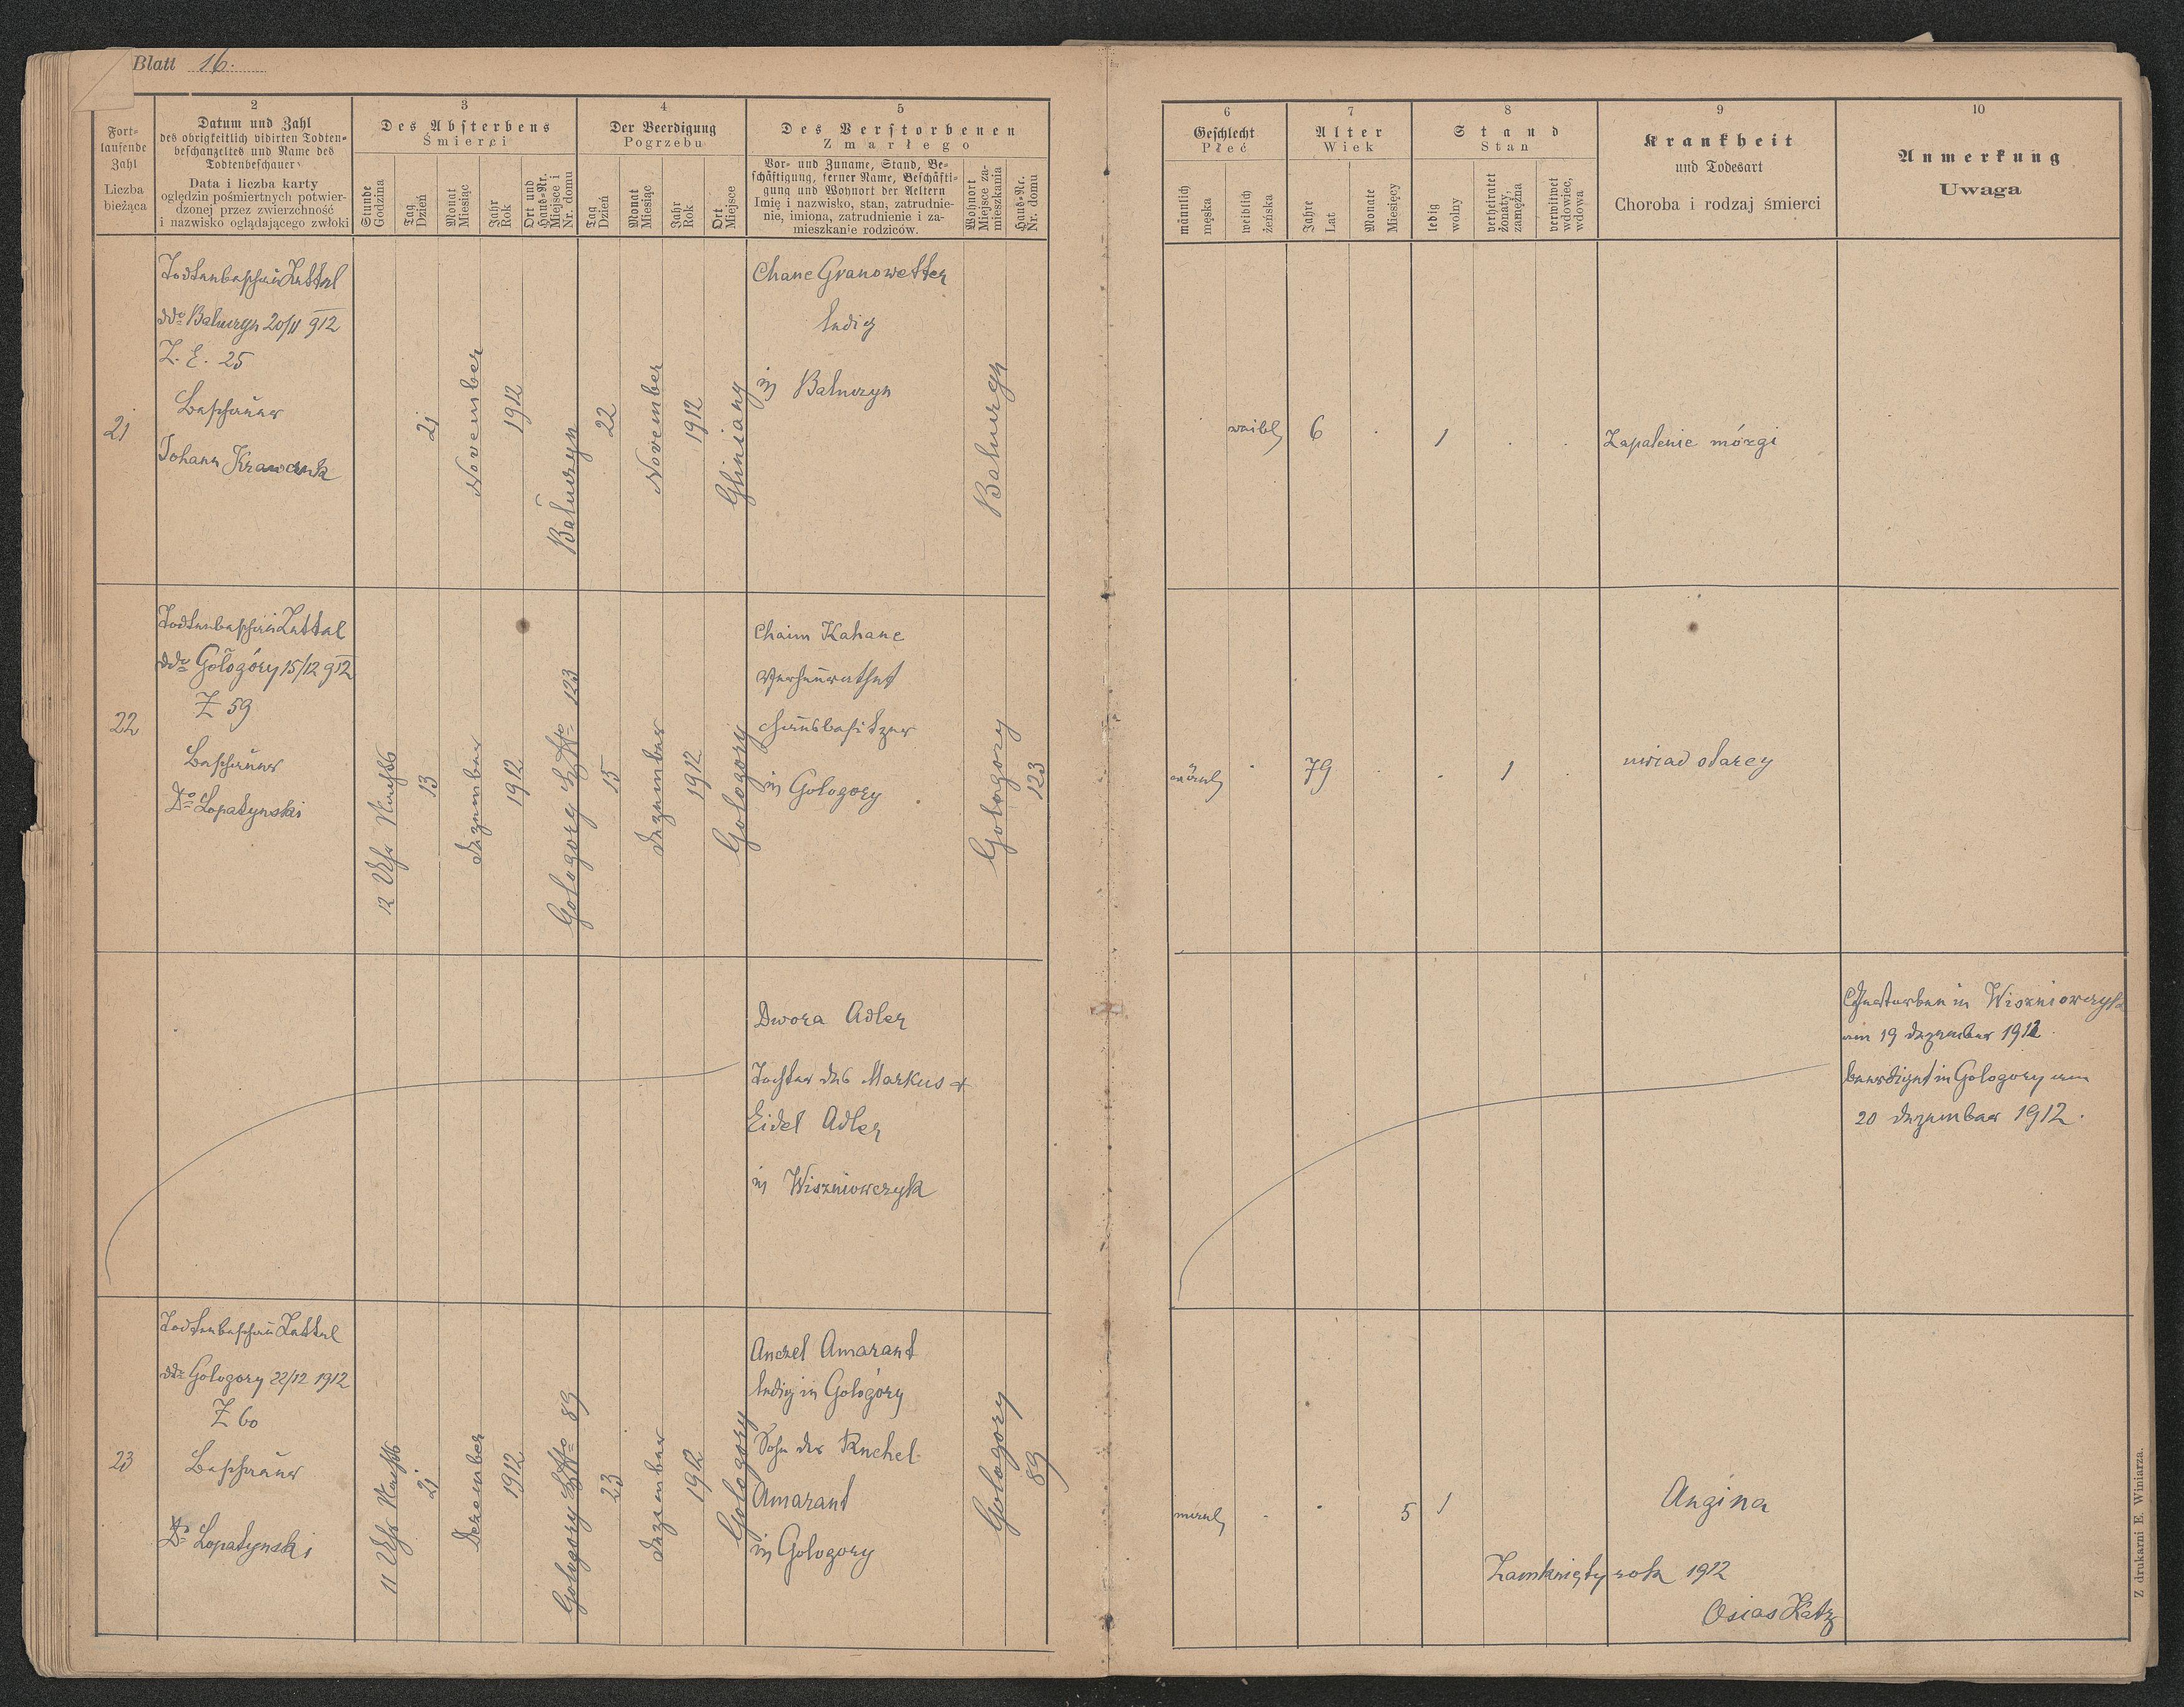 Blatt 16.
Fort-
laufende
Zahl
Liczba
bieżąca
2
Datum und Zahl
des obrigkeitlich vidirten Todten-
beschauzeltes und Name des
Todtenbeschauer
Data i liczba karty
oględzin pośmiertnych potwier-
dzonej przez zwierzchność
i nazwisko oglądającego zwłoki
3
Des Absterbens
Śmierci
Stunde
Godzina
Tag
Dzień
Monat
Miesiąc
Jahr
Rok
Ort und
Haus-Nr.
Miejsce i
Nr. domu
4
Der Beerdigung
Pogrzebu
Tag
Dzień
Monat
Miesiąc
Jahr
Rok
Ort
Miejsce
5
Des Verstorbenen
Zmarłego
Vor- und Zuname, Stand, Be-
schäftigung, ferner Name, Beschäfti-
gung und Wohnort der Aeltern
Imię i nazwisko, stan, zatrudnie-
nie, imiona, zatrudnienie i za-
mieszkanie rodziców.
Wohnort
Miejsce za-
mieszkania
Haus-Nr.
Nr. domu
6
Geschlecht
Płeć
männlich
męska
weiblich
żeńska
7
Alter
Wiek
Jahre
Lat
Monate
Miesięcy
8
Stand
Stan
ledig
wolny
verheiratet
żonaty,
zamężna
verwitwet
wdowiec,
wdowa
9
Krankheit
und Todesart
Choroba i rodzaj śmierci
10
Anmerkung
Uwaga
21
Todtenbeschau Zettel
ddo Bałuczyn 20/11 912
Z. E. 25
Beschauer
Johann Krawczuk
21
November
1912
Bałuczyn
22
November
1912
Gliniany
Chane Granowetter
ledig
in Bałuczyn
Bałuczyn
weibl
6
1
Zapalenie mózgi
22
Todtenbeschau Zettel
ddo Gołogóry 15/12 912
Z 59
Beschauer
Dr Lopatynski
12 Uhr Nachts
13
Dezember
1912
Gologory 123
15
Dezember
1912
Gologory
Chaim Kahane
Verheurathet
Hausbesitzer
in Gologory
Gologory
123
männl
79
1
uwiad starcy
Dwora Adler
Tochter des Markus &
Eidel Adler
in Wiszniowczyk
Gestorben in Wiszniowczyk
am 19 Dezember 1912.
beerdigt in Gologory am
20 Dezember 1912.
23
Todtenbeschau Zettel
ddo Gologory 22/12 1912
Z 60
Beschauer
Dr Lopatynski
11 Uhr Nachts
21
Dezember
1912
Gologory 89
23
Dezember
1912
Gologory
Anczel Amarant
ledig in Gologory
Sohn der Ruchel
Amarant
in Gologory
Gologory
89
männl
5
1
Angina
Zamknięty rok 1912
Osias Katz
Z drukarni E. Winiarza.